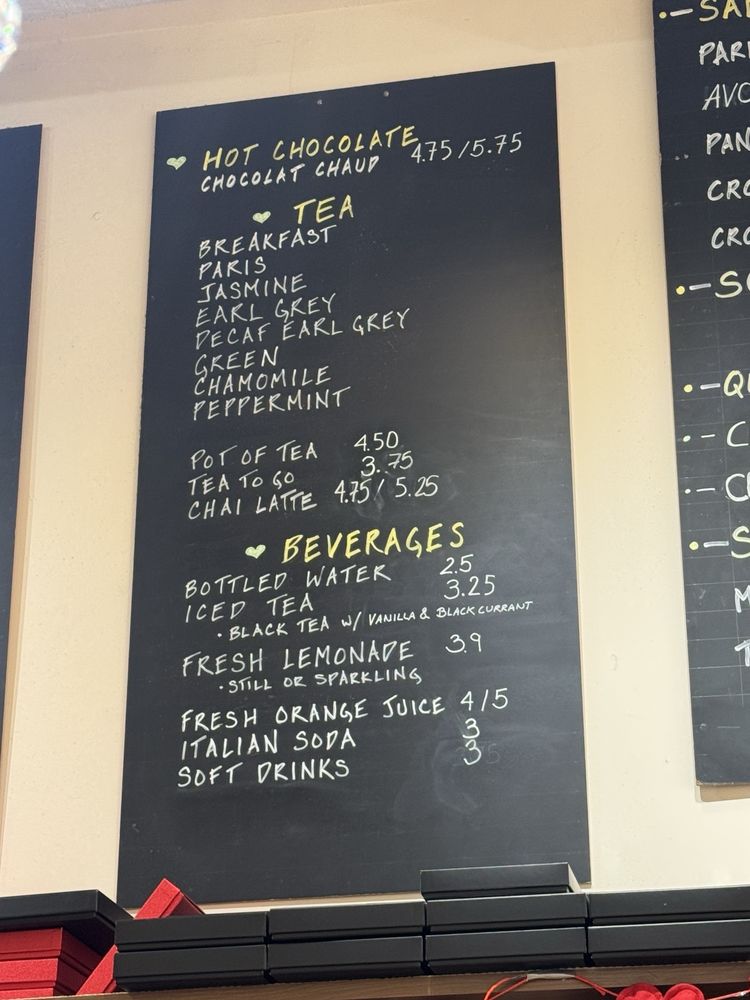 HOT CHOCOLATE 4.75/5.75
CHOCOLAT CHAUD
TEA
BREAKFAST
PARIS
JASMINE
EARL GREY
DECAF EARL GREY
GREEN
CHAMOMILE
PEPPERMINT
POT OF TEA 4.50
TEA TO GO 3.75
CHAI LATTE 4.75/ 5.25
BEVERAGES
BOTTLED WATER 2.5
ICED TEA 3.25
• BLACK TEA W/ VANILLA & BLACKCURRANT
FRESH LEMONADE 3.9
• STILL OR SPARKLING
FRESH ORANGE JUICE 4/5
ITALIAN SODA 3
SOFT DRINKS 3